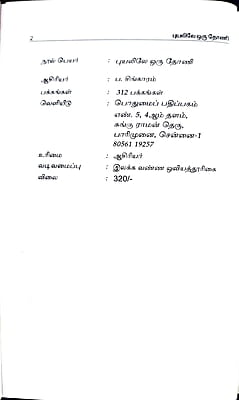 2
புயலிலே ஒரு தோணி
நூல் பெயர் : புயலிலே ஒரு தோணி
ஆசிரியர் : ப. சிங்காரம்
பக்கங்கள் : 312 பக்கங்கள்
வெளியீடு : பொதுமைப் பதிப்பகம்
எண். 5, 4ஆம் தளம்,
சுங்கு ராமன் தெரு,
பாரிமுனை, சென்னை-1
80561 19257
உரிமை : ஆசிரியர்
வடிவமைப்பு : இலக்க வண்ண ஓவியத்தூரிகை
விலை : 320/-